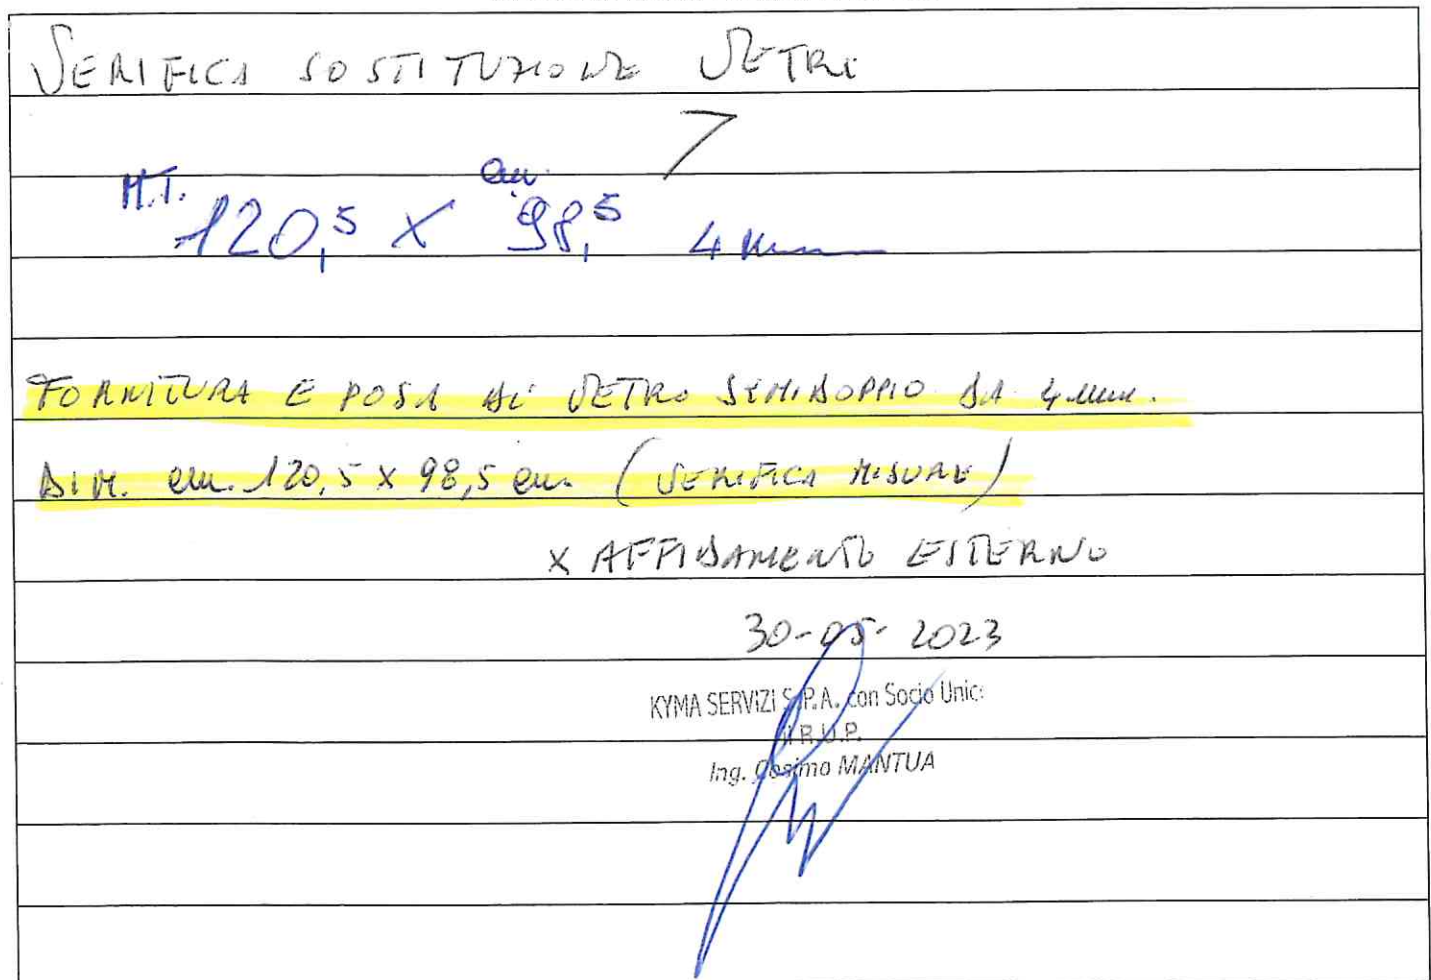 VERIFICA SOSTITUZIONE VETRI
M.T. cm.
120,5 X 98,5 4 mm
FORNITURA E POSA DI VETRO SEMIDOPPIO DA 4 mm.
DIM. cm. 120,5 X 98,5 cm. (VERIFICA MISURE)
X AFFIDAMENTO ESTERNO
30-05-2023
KYMA SERVIZI S.P.A. con Socio Unic
Il R.U.P.
Ing. Cosimo MANTUA